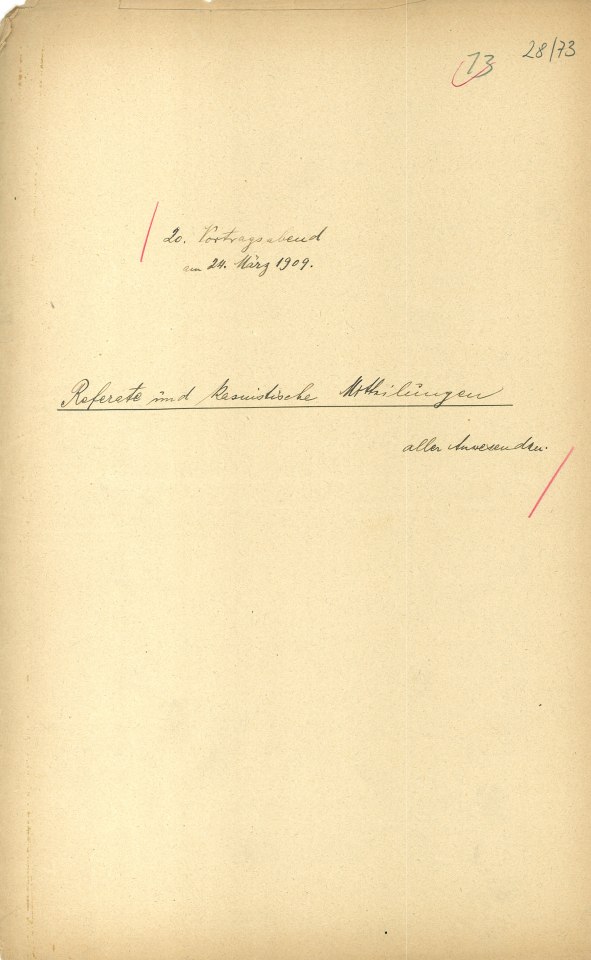 28/73
73
20. Vortragsabend
am 24. März 1909.
Referate und kasuistische Mittheilungen
aller Anwesenden.